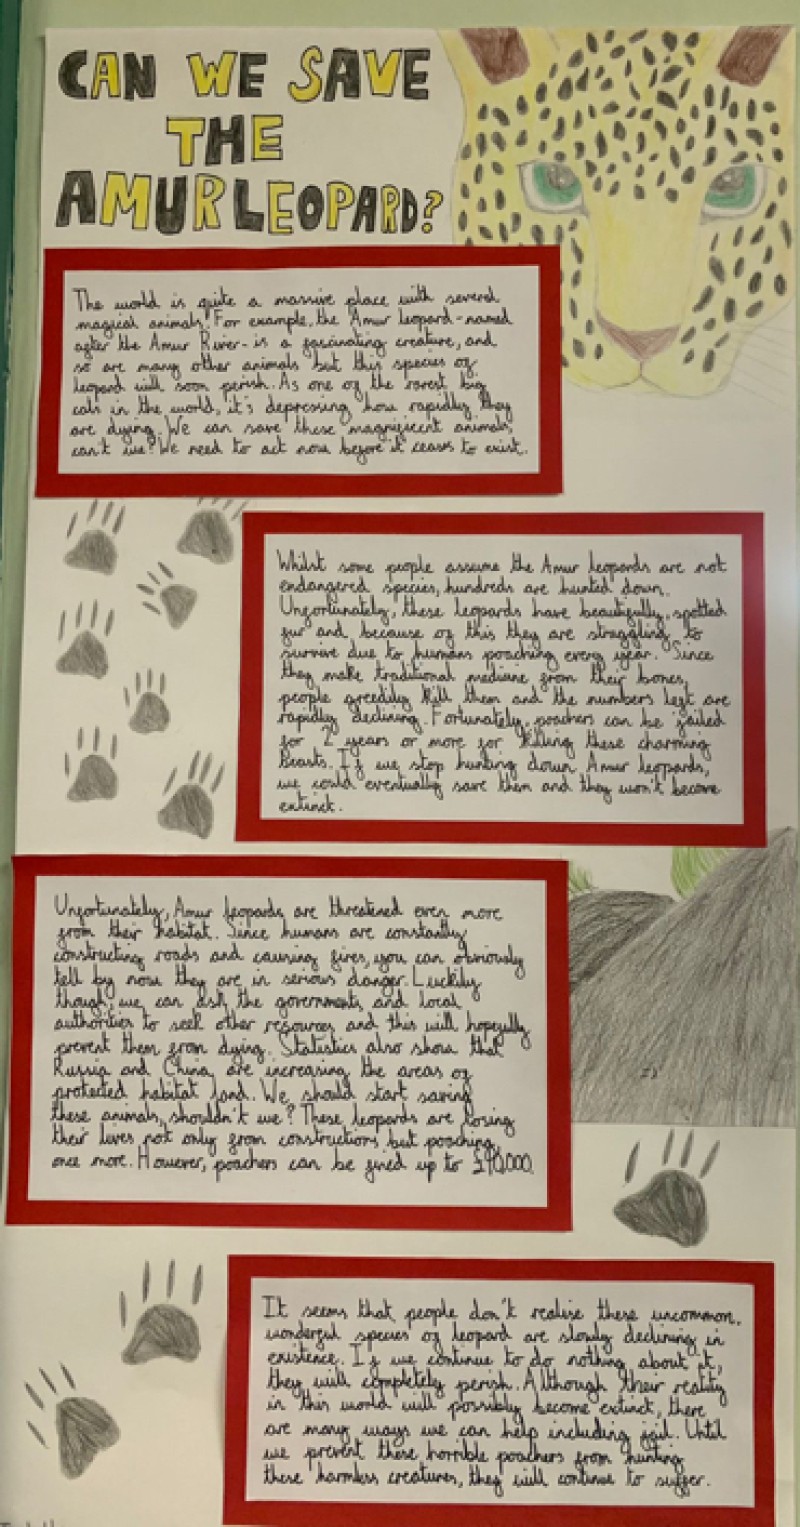 CAN WE SAVE
THE
AMUR LEOPARD?
The world is quite a massive place with several
magical animals. For example, the Amur leopard-named
after the Amur River- is a fascinating creature, and
so are many other animals but this species of
leopard will soon perish. As one of the rarest big
cats in the world, it's depressing how rapidly they
are dying. We can save these magnificent animals,
can't we? We need to act now before it ceases to exist.
Whilst some people assume the Amur leopards are not
endangered species, hundreds are hunted down.
Unfortunately, these leopards have beautifully, spotted
fur and because of this they are struggling to
survive due to humans poaching every year. Since
they make traditional medicine from their bones,
people greedily kill them and the numbers left are
rapidly declining. Fortunately, poachers can be jailed
for 2 years or more for killing these charming
Beasts. If we stop hunting down Amur leopards,
we could eventually save them and they won't become
extinct.
Unfortunately, Amur leopards are threatened even more
from their habitat. Since humans are constantly
constructing roads and causing fires, you can obviously
tell by now they are in serious danger. Luckily
though, we can ask the governments and local
authorities to seek other resources and this will hopefully
prevent them from dying. Statistics also show that
Russia and China are increasing the areas of
protected habitat land. We should start saving
these animals, shouldn't we? These leopards are losing
their lives not only from constructions but poaching
once more. However, poachers can be fined up to
It seems that people don't realise these uncommon,
wonderful species of leopard are slowly declining in
existence. If we continue to do nothing about it,
they will completely perish. Although their reality
in this world will possibly become extinct, there
are many ways we can help including jail. Until
we prevent these horrible poachers from hunting
these harmless creatures, they will continue to suffer.